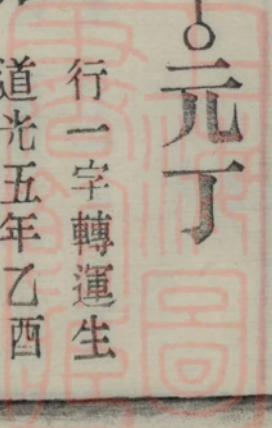 元丁
行一字轉運生
道光五年乙酉